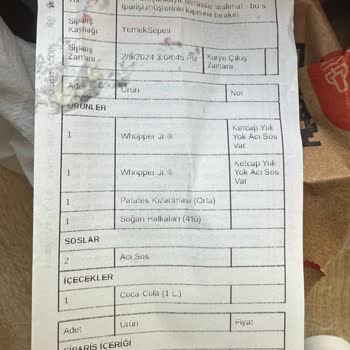 temassız teslimat - bu s
siparişi müşterinin kapısına bırakın
Sipariş
Kaynağı YemekSepeti
Sipariş
Zamanı 2/9/2024 3:06:45 PM Kurye Çıkış
Zamanı
Adet Ürün Not
ÜRÜNLER
1 Whopper Jr.® Ketçap Yok
Yok Acı Sos
Var
1 Whopper Jr.® Ketçap Yok
Yok Acı Sos
Var
1 Patates Kızartması (Orta)
1 Soğan Halkaları (4lü)
SOSLAR
2 Acı Sos
İÇECEKLER
1 Coca Cola (1 L.)
Adet Ürün Fiyat
SİPARİŞ İÇERİĞİ